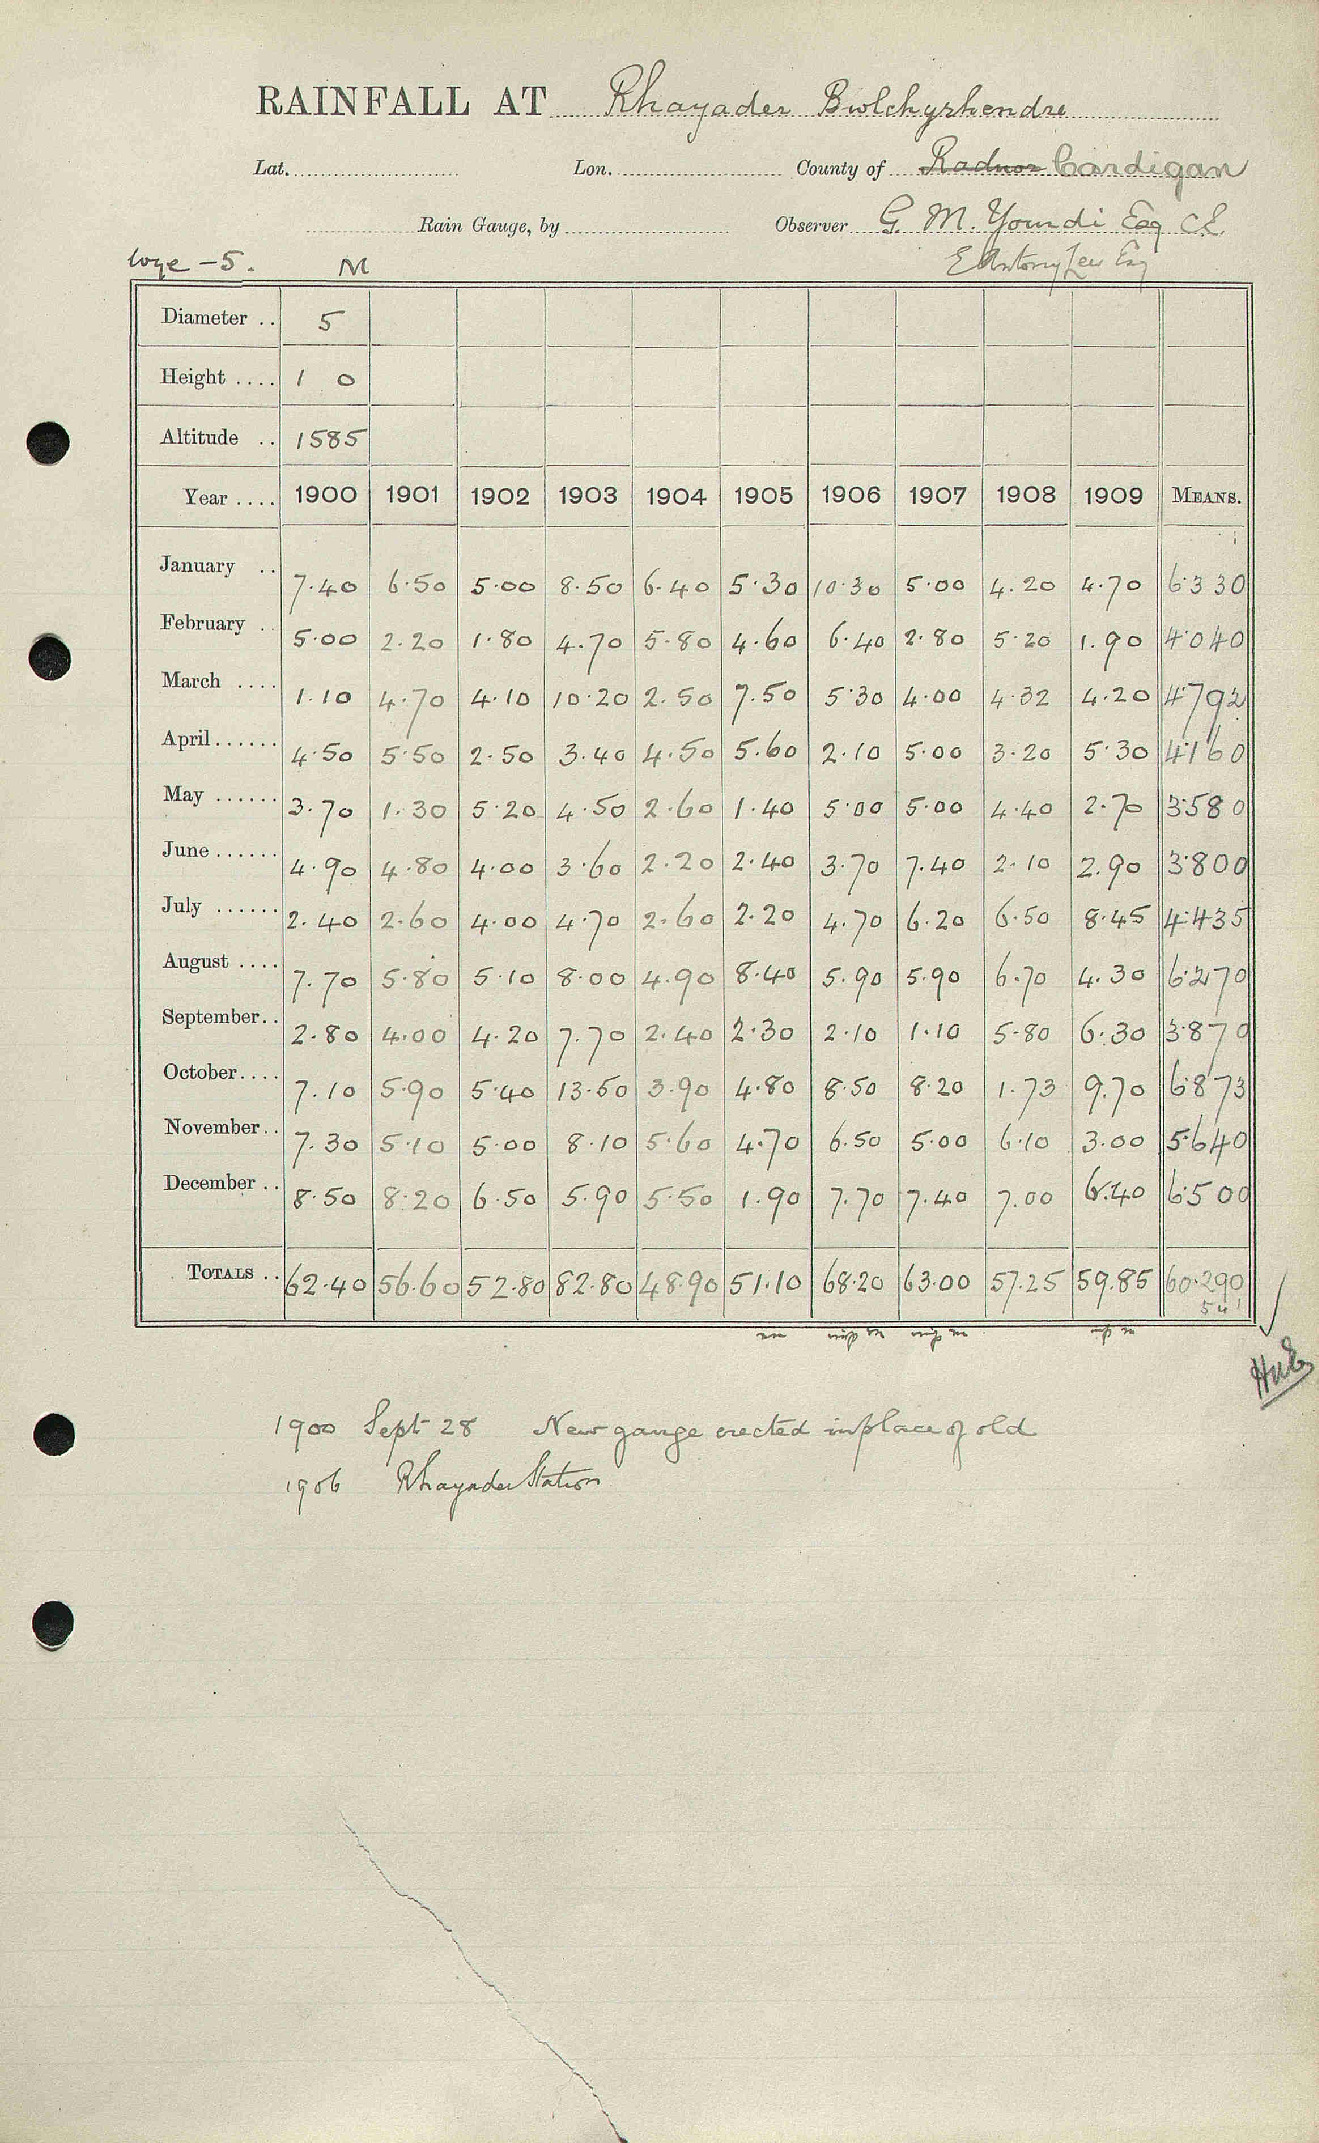 RAINFALL AT Rhayader Bwlchyrhendre
Lat. Lon. County of Radnor Cardigan
Rain Gauge, by Observer G. M. Yourdi Esq C.E.
Wye - 5. M E Antony Lees Esq
Diameter .. 5
Height .... 1 0
Altitude .. 1585
Year .... 1900 1901 1902 1903 1904 1905 1906 1907 1908 1909 MEANS.
January .. 7.40 6.50 5.00 8.50 6.40 5.30 10.30 5.00 4.20 4.70 6.330
February .. 5.00 2.20 1.80 4.70 5.80 4.60 6.40 2.80 5.20 1.90 4.040
March .... 1.10 4.70 4.10 10.20 2.50 7.50 5.30 4.00 4.32 4.20 4.792
April...... 4.50 5.50 2.50 3.40 4.50 5.60 2.10 5.00 3.20 5.30 4.160
May ...... 3.70 1.30 5.20 4.50 2.60 1.40 5.00 5.00 4.40 2.70 3.580
June...... 4.90 4.80 4.00 3.60 2.20 2.40 3.70 7.40 2.10 2.90 3.800
July ...... 2.40 2.60 4.00 4.70 2.60 2.20 4.70 6.20 6.50 8.45 4.435
August .... 7.70 5.80 5.10 8.00 4.90 8.40 5.90 5.90 6.70 4.30 6.270
September.. 2.80 4.00 4.20 7.70 2.40 2.30 2.10 1.10 5.80 6.30 3.870
October.... 7.10 5.90 5.40 13.50 3.90 4.80 8.50 8.20 1.73 9.70 6.873
November.. 7.30 5.10 5.00 8.10 5.60 4.70 6.50 5.00 6.10 3.00 5.640
December .. 8.50 8.20 6.50 5.90 5.50 1.90 7.70 7.40 7.00 6.40 6.500
TOTALS .. 62.40 56.60 52.80 82.80 48.90 51.10 68.20 63.00 57.25 59.85 60.290
1900 Sept 28 New gauge erected in place of old
1906 Rhayader Station